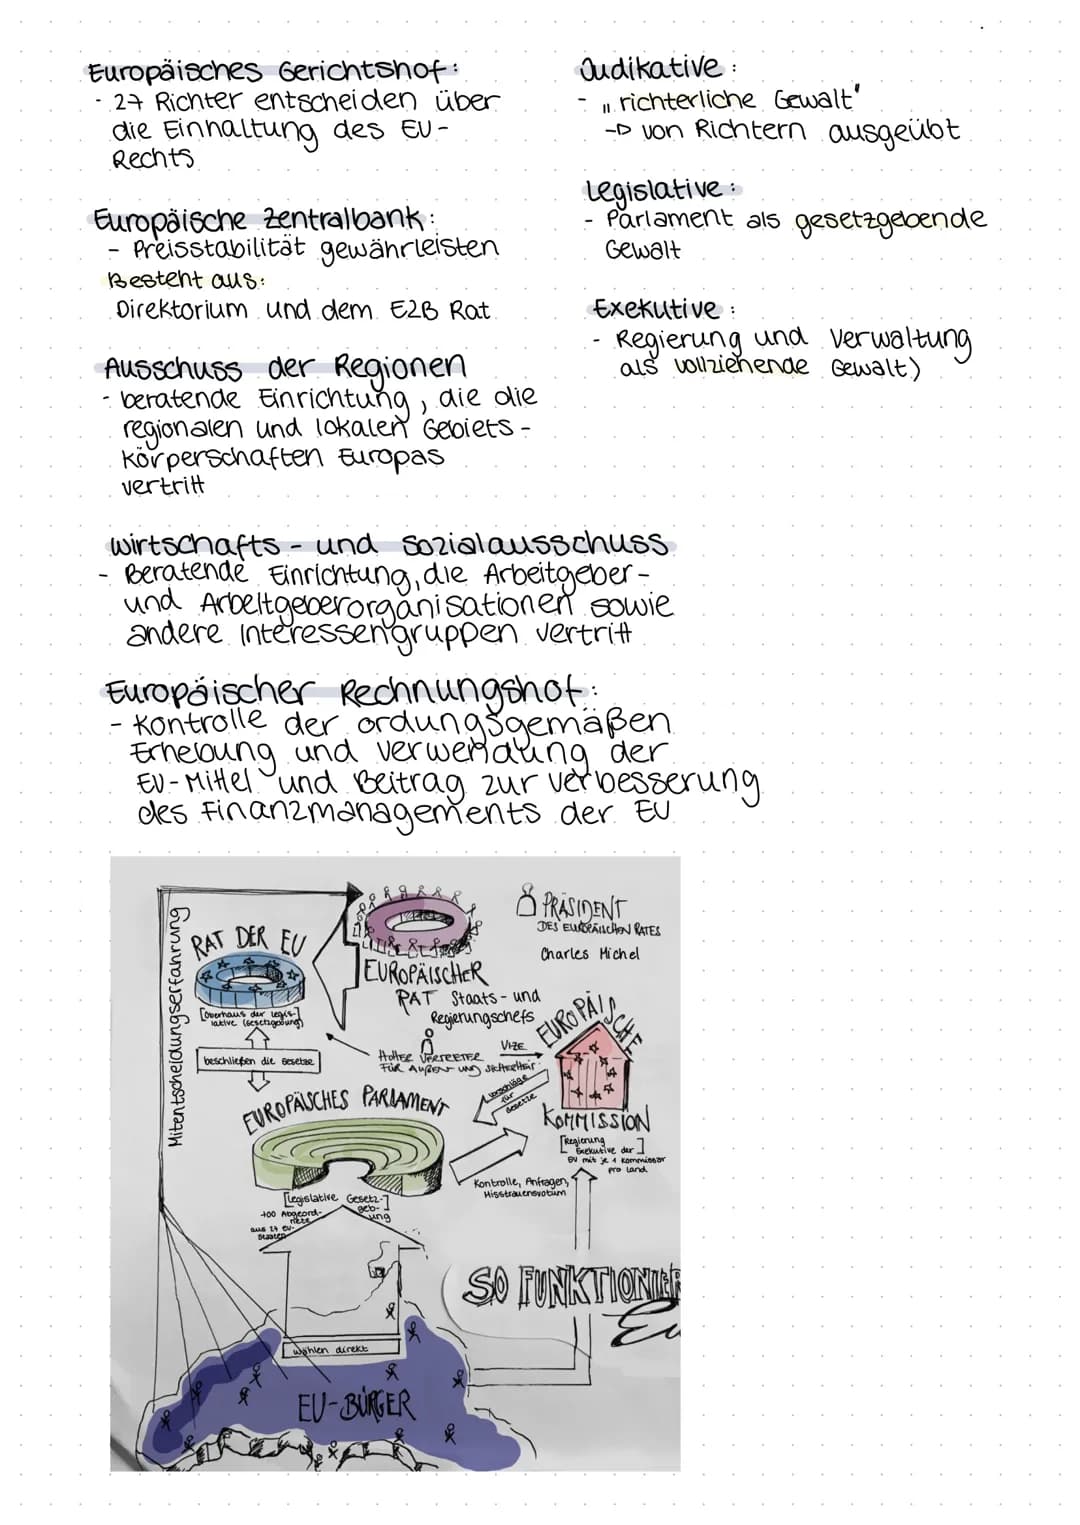 Europäisches Gerichtshof:
- 27 Richter entscheiden über
die Einhaltung des EU-
Rechts
Europäische Zentralbank:
- Preisstabilität gewährleisten
Besteht aus:
Direktorium und dem EZB Rat
Ausschuss der Regionen
- beratende Einrichtung, die die
regionalen und lokalen Gebiets-
körperschaften Europas
vertritt
Judikative:
- „richterliche Gewalt"
→ von Richtern ausgeübt
Legislative:
- Parlament als gesetzgebende
Gewalt
Exekutive:
- Regierung und Verwaltung
als vollziehende Gewalt)
Wirtschafts- und Sozialausschuss
- Beratende Einrichtung, die Arbeitgeber-
und Arbeitgeberorganisationen sowie
andere Interessengruppen vertritt
Europäischer Rechnungshof:
- Kontrolle der ordungsgemäßen
Erhebung und Verwendung der
EU-Mittel und Beitrag zur Verbesserung
des Finanzmanagements der EU
Mitentscheidungserfahrung
RAT DER EU
[Oberhaus der Legis-]
lative (Gesetzgebung)
beschließen die Gesetze
EUROPÄISCHER
RAT Staats- und
Regierungschefs
PRÄSIDENT
DES EUROPÄISCHEN RATES
Charles Michel
HOHER VERTRETER
FÜR AUßEN- UND SICHERHEIT
VIZE
EUROPÄISCHE
KOMMISSION
[Regierung
Exekutive der]
EU mit je 1 Kommissar
pro Land
Vorschläge
für
Gesetze
EUROPÄISCHES PARLAMENT
[Legislative Gesetz-]
geb-
ung
700 Abgeord-
nete
aus 27 EU-
Staaten
Kontrolle, Anfragen,
Misstrauensvotum
SO FUNKTIONIER
Eu
wählen direkt
EU-BÜRGER